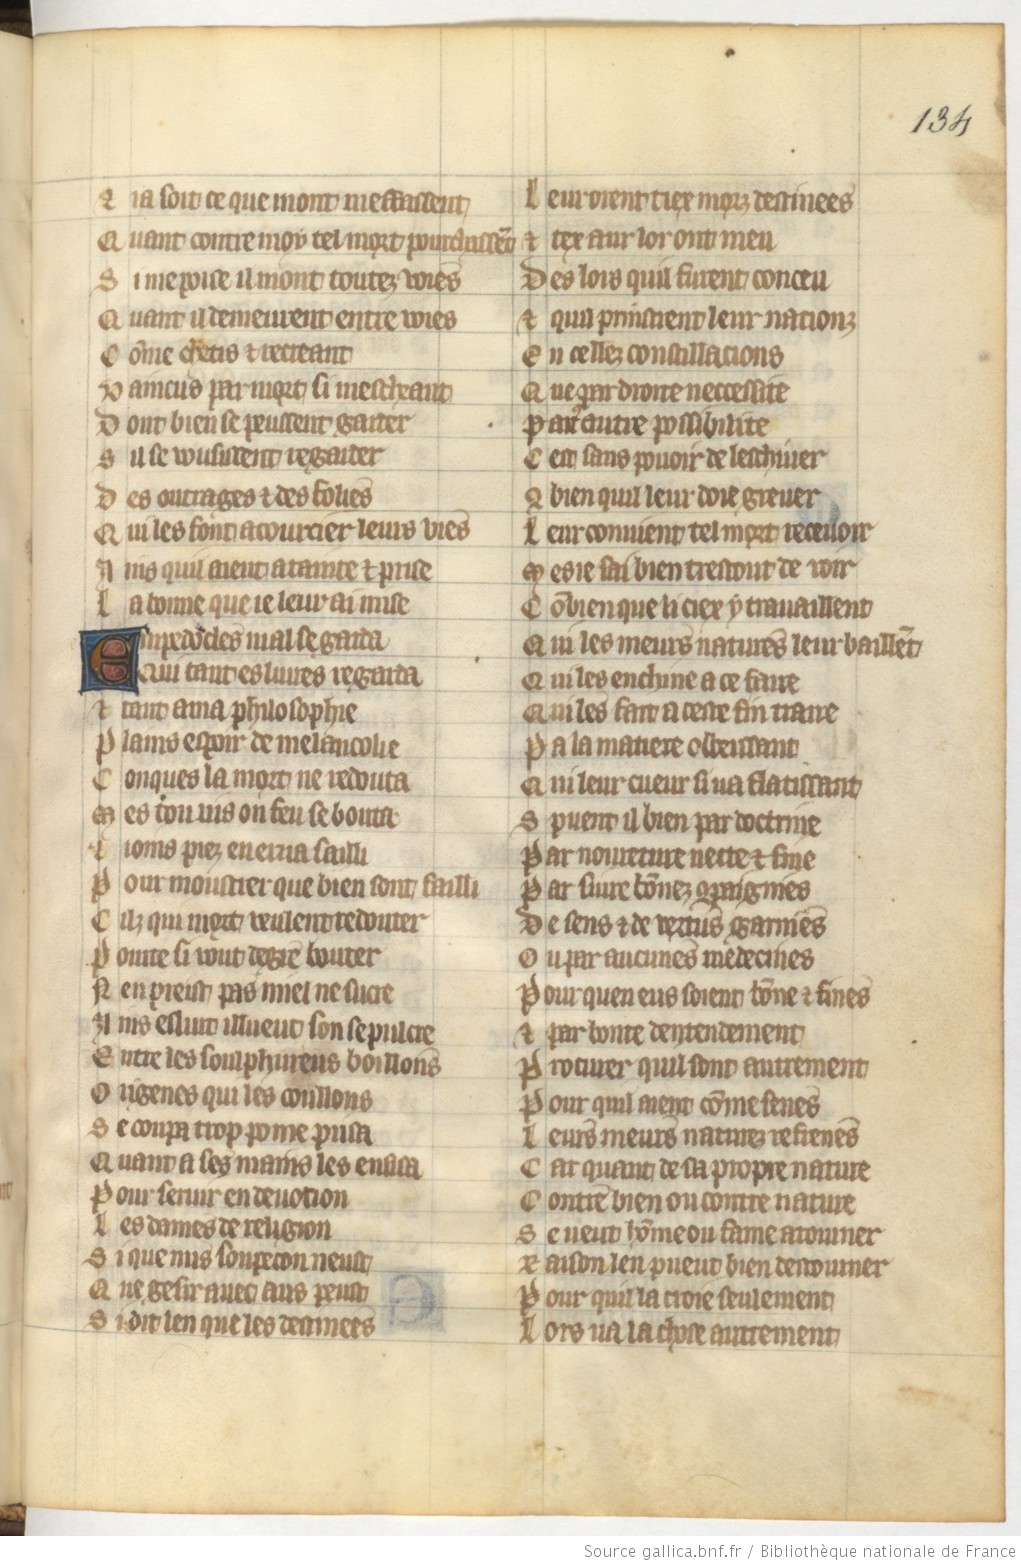 134
Et ia soit ce que mont meffacent
Quant contre moy tel mort pourchassēt
Si me poise il mont toutez voies
Quant il demeurent entre voies
Cōme chetis et recreant
Vaincus par mort si mescheant
Dont bien se peussent garder
Sil se vousissent regarder
Des outrages et des folies
Qui les font acourcier leurs vies
Ains quil aient atainte et prise
La bonne que ie leur ai mise
Empedocles mal se garda
Qui tant es livres regarda
Et tant ama philosophie
Plains espoir de melancolie
Conques la mort ne redouta
Mes tout vis ou feu se bouta
Et ioins piez en ethna sailli
Pour moustrer que bien sont failli
Cilz qui mort veulent redouter
Pource si vout de gre bouter
Nen preist pas miel ne sucre
Ains eslut illueut son sepulcre
Entre les soulphureus boillons
Origenes qui les couillons
Se coupa trop pome prisa
Quant a ses mains les encisa
Pour servir en devotion
Les dames de religion
Si que nus soupecon neust
Que gesir avec aus peust
Si dit len que les destinees
Leur orent tiex mors destinees
Et tex aur lor ont meu
Des lors quil furent conceu
Et quil prinstrent leur nations
En cellez constillacions
Que par droite neccessite
Par autre possibilite
Cest sans pouoir de leschiver
Combien quil leur doie grever
Leur convient tel mort recevoir
Mes ie sai bien trestout de voir
Cōbien que li ciex y travaillent
Qui les meurs naturēs leur baillēt
Qui les encline a ce faire
Qui les fait a ceste fin traire
Pa la matiere obeissant
Qui leur cueur si va flatissant
Si puent il bien par doctrine
Par nourreture nette et fine
Par suivre bōnez cōpaignies
De sens et de vertus garnies
Ou par aucunes medecines
Pour quen eus soient bōne et fines
Et par bonte dentendement
Procurer quil sont autrement
Pour quil aient cōme senes
Leurs meurs naturez refrenes
Car quant de sa propre nature
Contre bien ou contre nature
Se veut hōme ou fame atourner
Raison len pueut bien destourner
Pour quil la croie seulement
Lors va la chose autrement
Source gallica.bnf.fr / Bibliothèque nationale de France